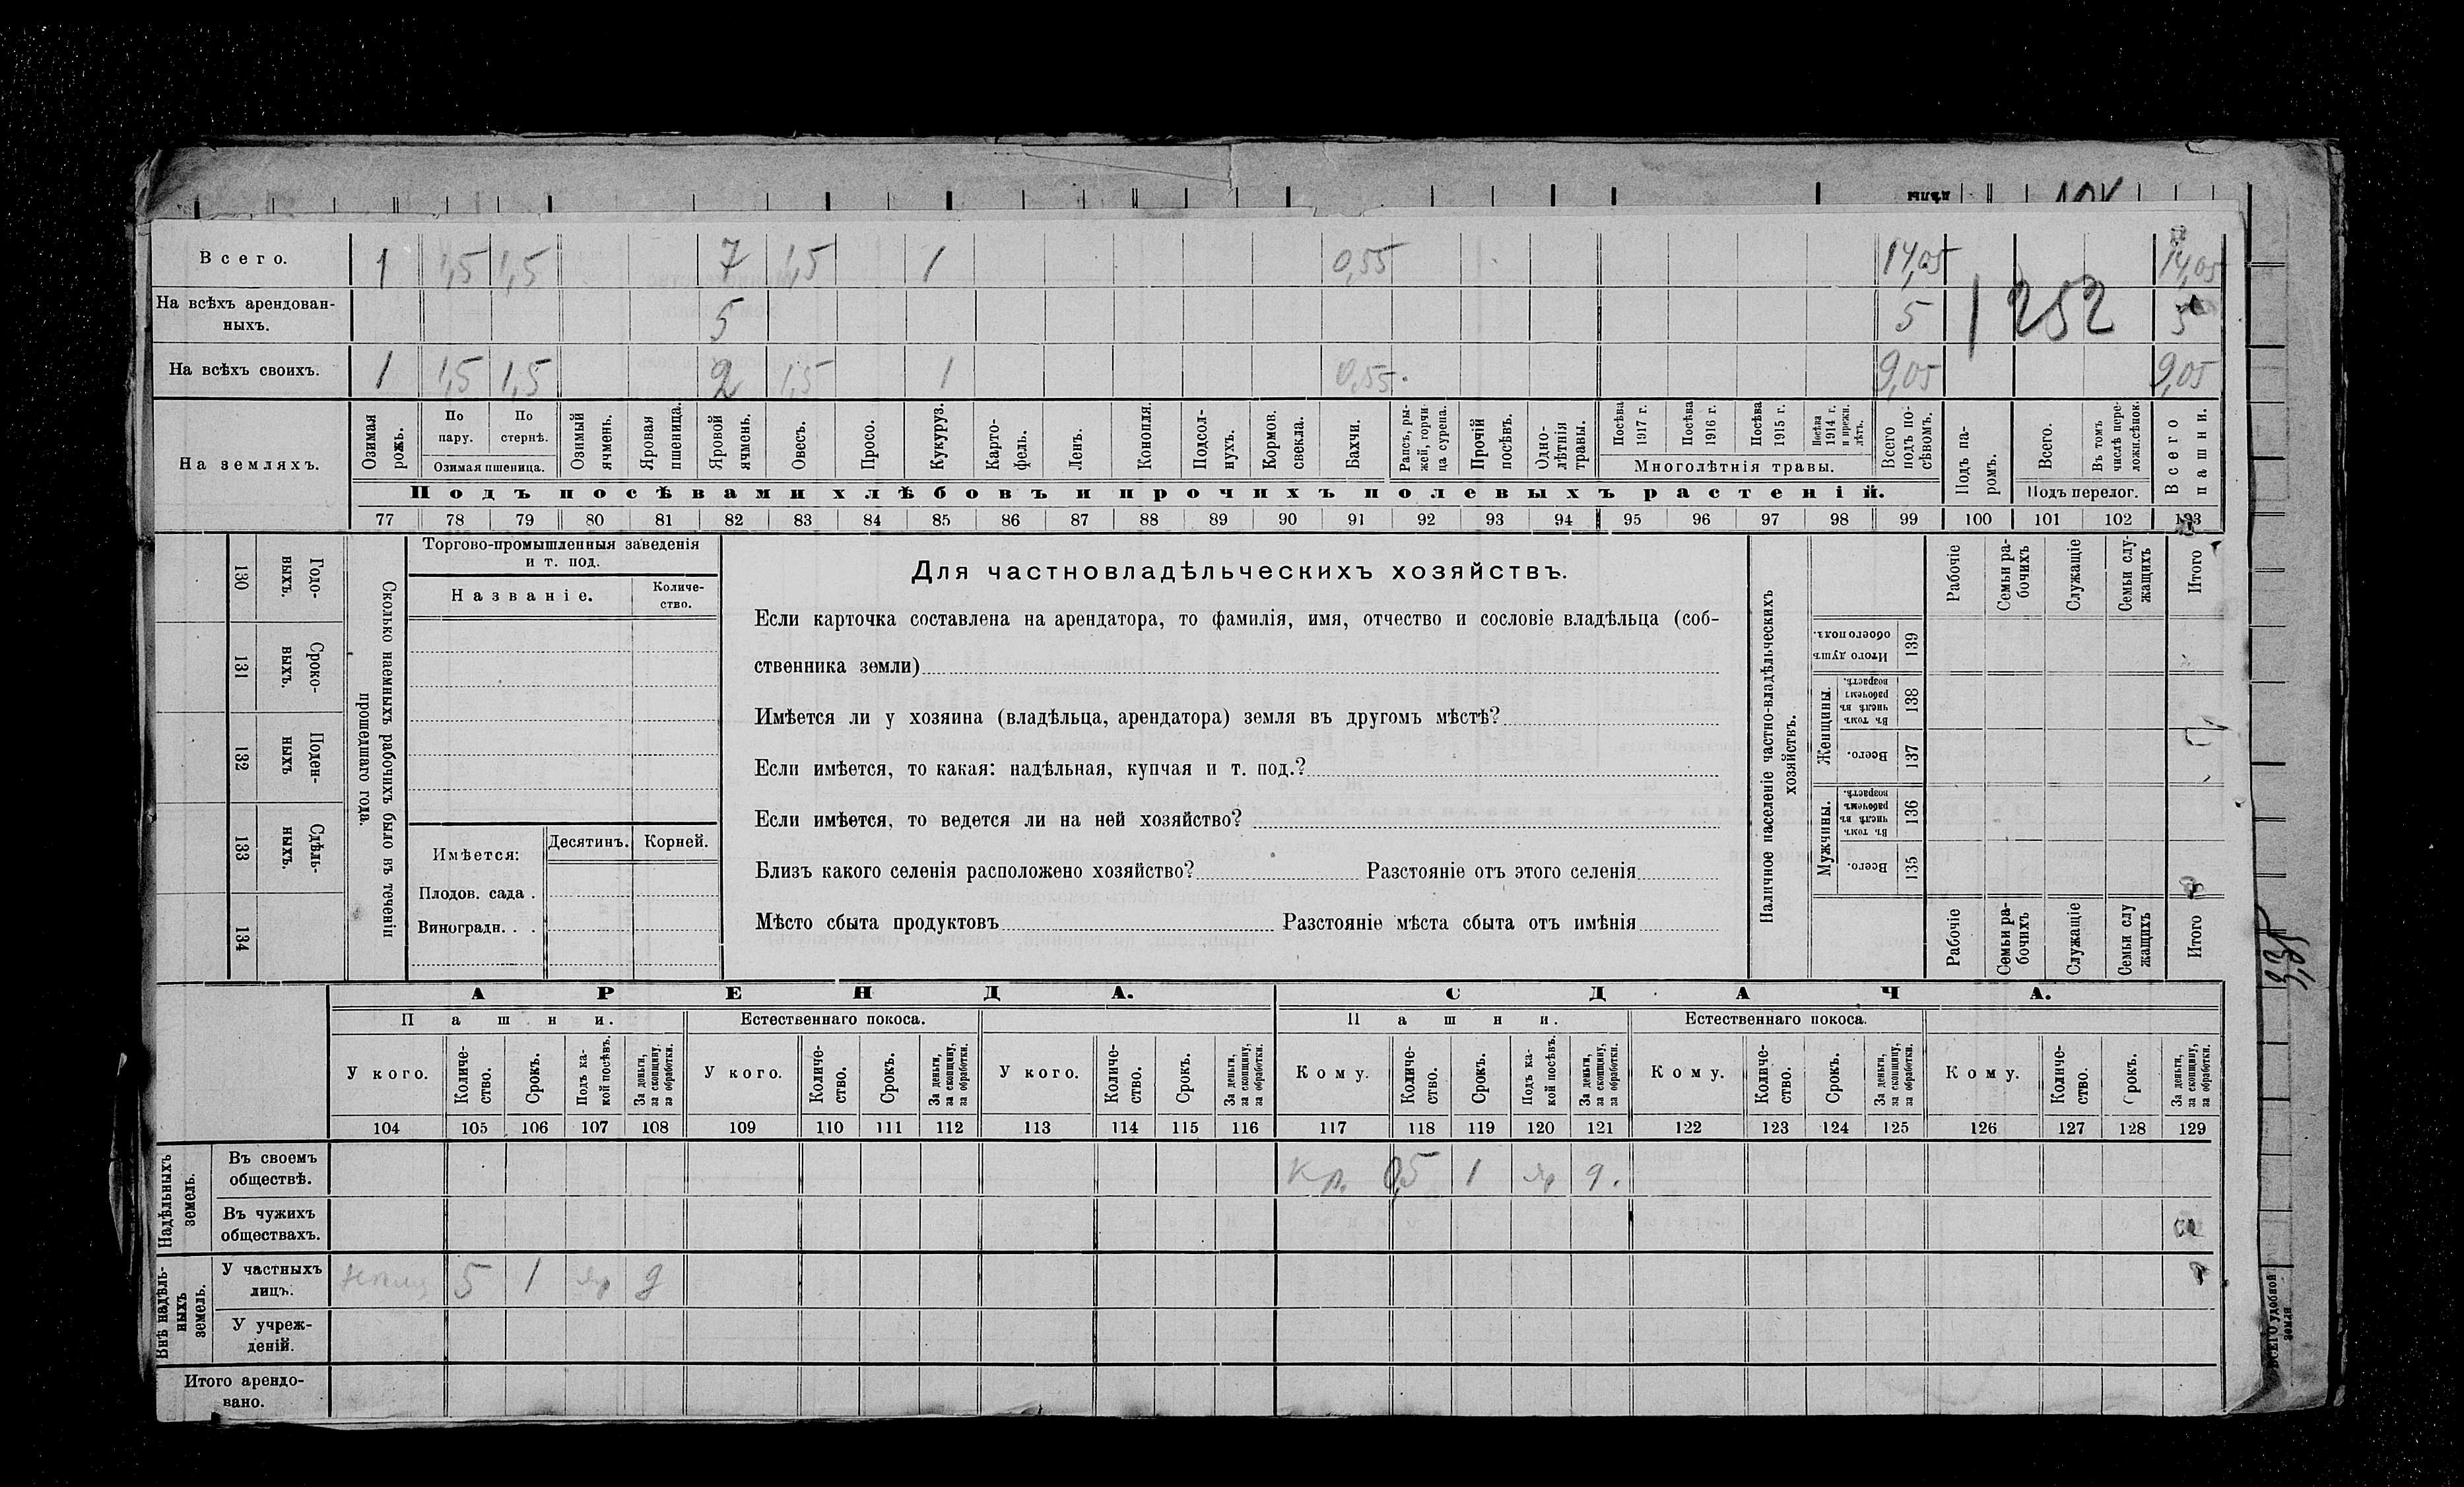 дѣцы
Всего. 1 1,5 1,5 7 1,5 1 0,55 14,05 14,05
На всѣхъ арендован-
ныхъ. 5 5 1252 5
На всѣхъ своихъ. 1 1,5 1,5 2 1,5 1 0,55. 9,05 9,05
На земляхъ.
Озимая рожь.
По пару.
По стернѣ.
Озимая пшеница.
Озимый ячмень.
Яровая пшеница.
Яровой ячмень.
Овесъ.
Просо.
Кукуруз.
Карто-
фель.
Ленъ.
Конопля.
Подсол-
нухъ.
Кормов.
свекла.
Бахчи.
Рапсъ, ры-
жей, горчи-
ца сурепа.
Прочій
посѣвъ.
Одно-
лѣтнія
травы.
Посѣва
1917 г.
Посѣва
1916 г.
Посѣва
1915 г.
Посѣва
1914 г.
и прежн.
лѣтъ.
Многолѣтнія травы.
Всего
подъ по-
сѣвомъ.
Подъ па-
ромъ.
Всего.
Въ томъ
числѣ пере-
ложн.сѣнок.
Подъ перелог.
Всего
пашни.
Подъ посѣвами хлѣбовъ и прочихъ полевыхъ растеній.
77 78 79 80 81 82 83 84 85 86 87 88 89 90 91 92 93 94 95 96 97 98 99 100 101 102 103
130 Годо-
выхъ.
131 Сроко-
выхъ.
132 Поден-
ныхъ
133 Сдѣль-
ныхъ.
134
Сколько наемныхъ рабочихъ было въ теченіи
прошедшаго года.
Торгово-промышленныя заведенія
и т. под.
Названіе.
Количе-
ство.
Имѣется:
Десятинъ. Корней.
Плодов. сада .
Виноградн. . .
Для частновладѣльческихъ хозяйствъ.
Если карточка составлена на арендатора, то фамилія, имя, отчество и сословіе владѣльца (соб-
ственника земли)
Имѣется ли у хозяина (владѣльца, арендатора) земля въ другомъ мѣстѣ?
Если имѣется, то какая: надѣльная, купчая и т. под.?
Если имѣется, то ведется ли на ней хозяйство?
Близъ какого селенія расположено хозяйство? Разстояніе отъ этого селенія
Мѣсто сбыта продуктовъ Разстояніе мѣста сбыта отъ имѣнія
Наличное населеніе частно-владѣльческихъ
хозяйствъ.
Рабочіе
Семьи ра-
бочихъ
Служащіе
Семьи слу-
жащихъ
Итого
Итого душъ
обоего пол.
139
Женщины.
Въ томъ
числѣ въ
рабочемъ
возрастѣ.
138
Всего.
137
Мужчины.
Въ томъ
числѣ въ
рабочемъ
возрастѣ.
136
Всего.
135
Рабочіе
Семьи ра-
бочихъ
Служащіе
Семьи слу
жащихъ
Итого
АРЕНДА.
СДАЧА.
Пашни.
Естественнаго покоса.
Пашни.
Естественнаго покоса.
У кого.
Количе-
ство.
Срокъ.
Подъ ка-
кой посѣвъ.
За деньги,
за скопщину,
за обработки.
У кого.
Количе-
ство.
Срокъ.
За деньги,
за скопщину,
за обработки.
У кого.
Количе-
ство.
Срокъ.
За деньги,
за скопщину,
за обработки.
Кому.
Количе-
ство.
Срокъ.
Подъ ка-
кой посѣвъ.
За деньги,
за скопщину,
за обработки.
Кому.
Количе-
ство.
Срокъ.
За деньги,
за скопщину,
за обработки.
Кому.
Количе-
ство.
рокъ.
За деньги,
за скопщину,
за обработки.
104 105 106 107 108 109 110 111 112 113 114 115 116 117 118 119 120 121 122 123 124 125 126 127 128 129
Надѣльныхъ
земель.
Въ своемъ
обществѣ. Кр. 0,5 1 яр д.
Въ чужихъ
обществахъ.
Внѣ надѣль-
ныхъ
земель.
У частныхъ
лицъ. 5 1 яр д
У учреж-
деній.
Итого арендо-
вано.
ВСЕГО удобной
земли